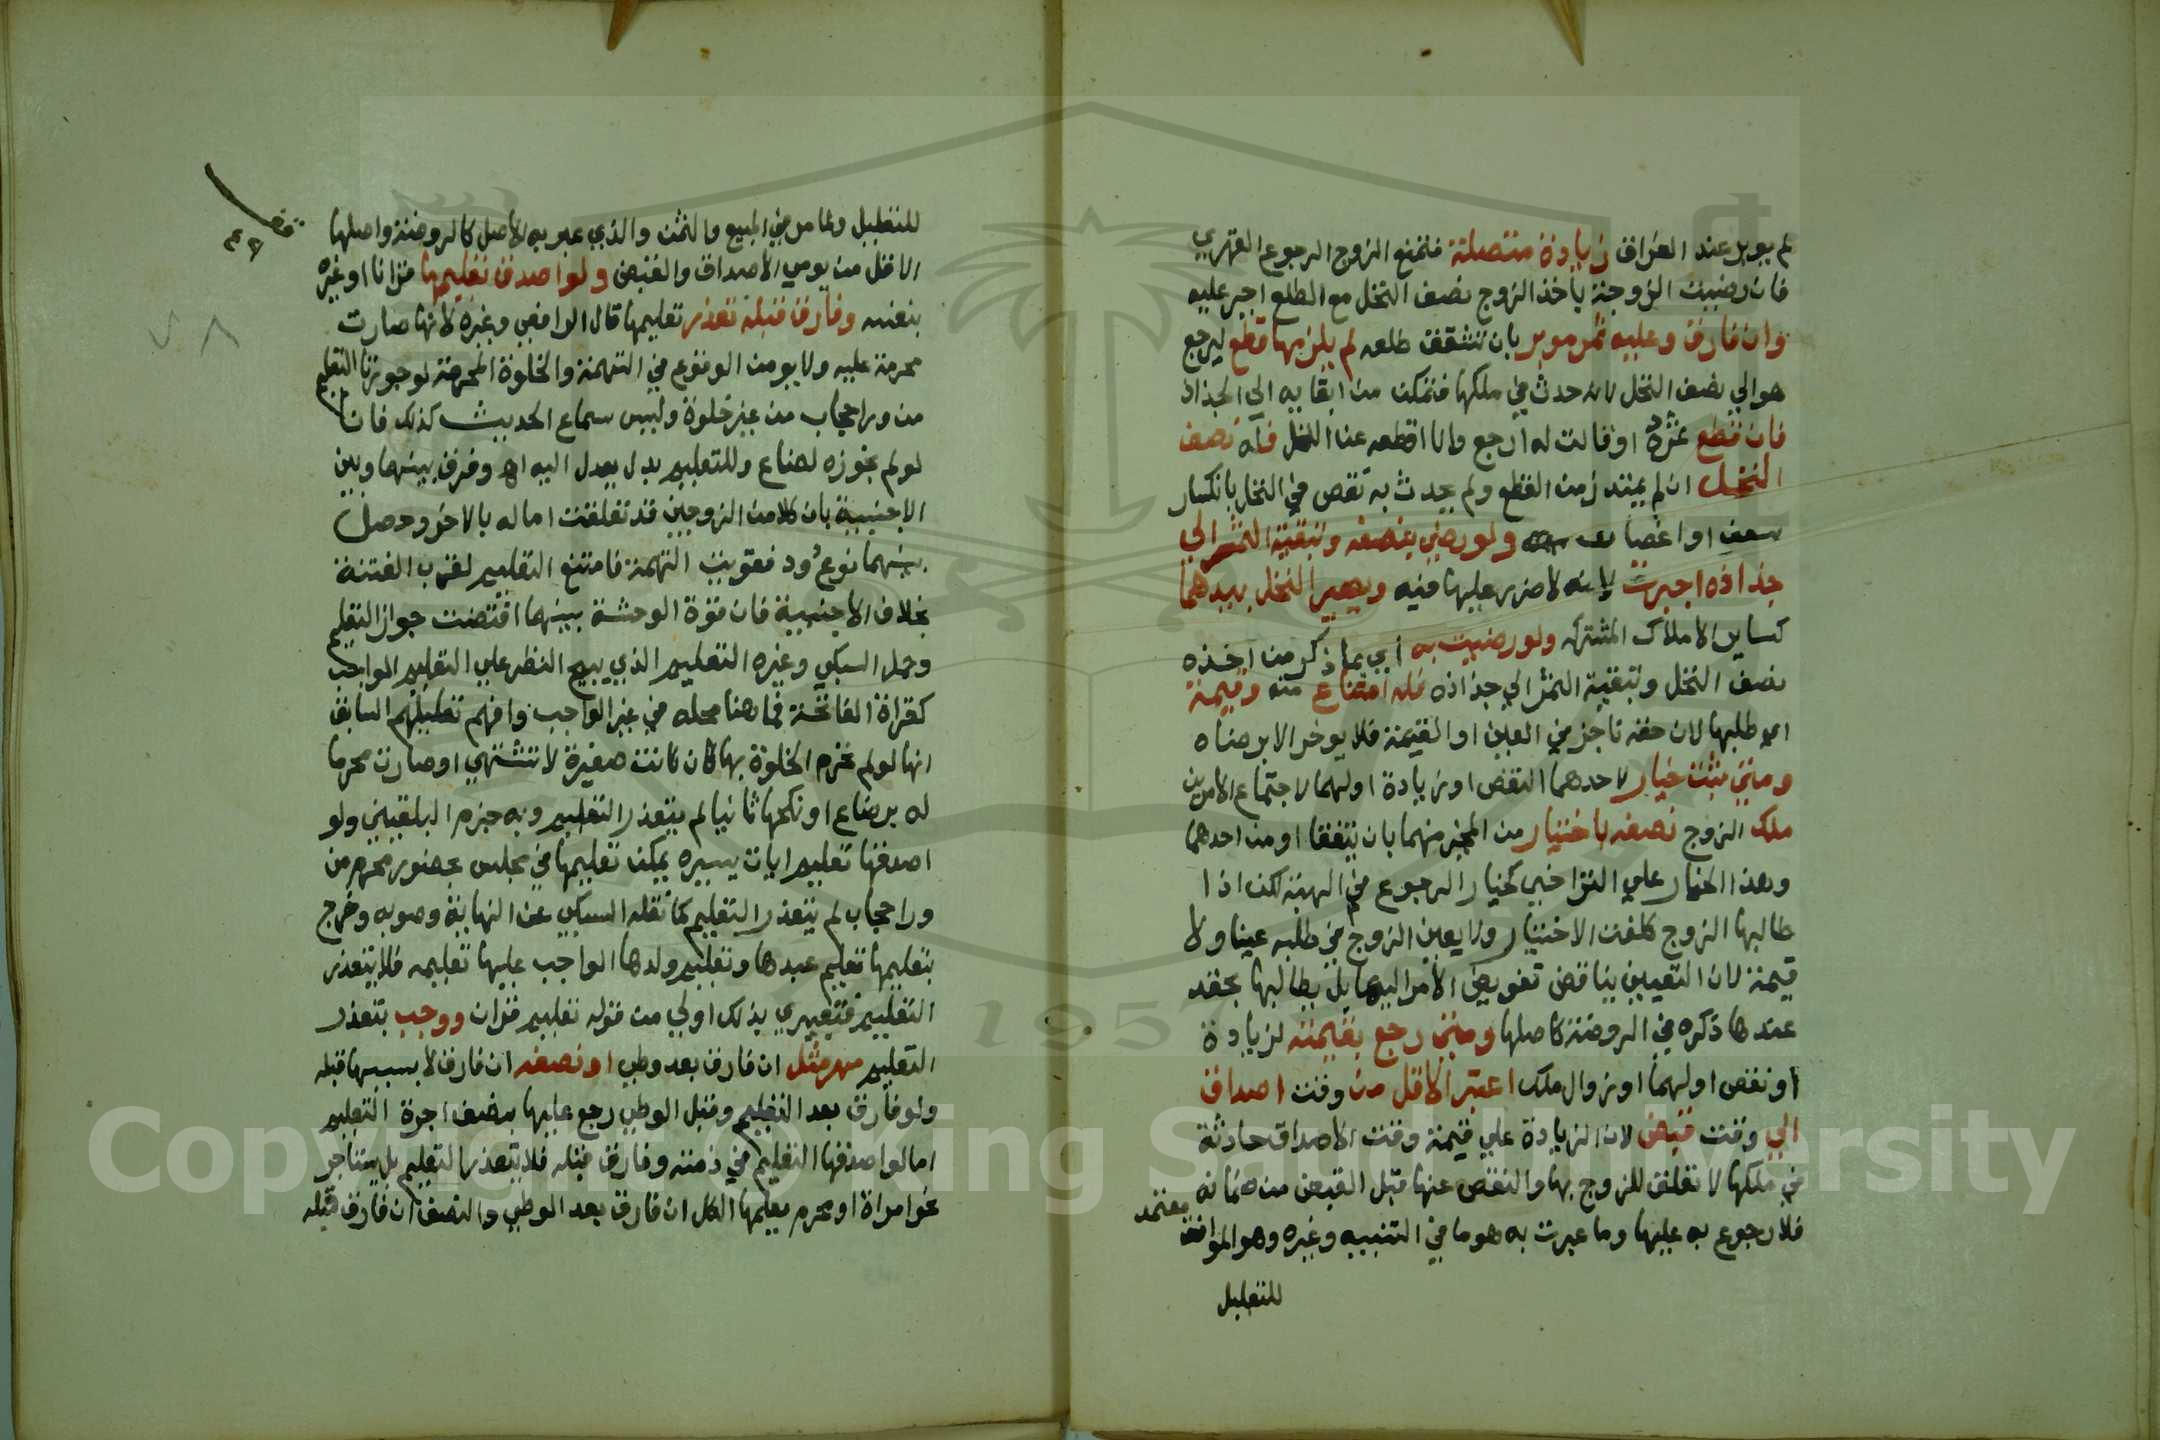 لم يوبر عند الفراق زيادة متصلة فتمنع الزوج الرجوع القهري
فان رضيت الزوجة ياخذ الزوج نصف النخل مع الطلع اجبر عليه
وان فارق وعليه ثمر موبر بان تشقق طلعه لم يلزمها قطع ليرجع
هو الي نصف النخل لانه حدث في ملكها فتمكن من ابقايه الي الجذاذ
فان قطع ثمره او قالت له ارجع وانا اقطعه عن النخل فله نصف
النخل ان لم يمتد زمن القطع ولم يحدث به نقص في النخل بانكسار
سعف او اغصان ولو رضي بنصفه وتبقية الثمر الي
جذاذه اجبرت لانه لا ضرر عليها فيه ويصير النخل بيدهما
كساير الاملاك المشتركه ولو رضيت به اي بما ذكر من اخذه
نصف النخل وتبقية الثمر الي جذاذه فله امتناع منه وقيمة
اي طلبها لان حقه ناجز في العين او القيمة فلا يوخر الا برضاه
ومتي ثبت خيار لاحدهما لنقص او زيادة او لهما لاجتماع الامرين
ملك الزوج نصفه باختيار من المخير منهما بان يتفقا او من احدهما
وهذا الخيار علي التراخي كخيار الرجوع في الهبة لكن اذا
طالبها الزوج كلفت الاختيار ولا يعين الزوج في طلبه عينا ولا
قيمة لان التعيين يناقض تفويض الامر اليها بل يطالبها بحقه
عندها ذكره في الروضة كاصلها ومتي رجع بقيمته لزيادة
او نقص او لهما او زوال ملك اعتبر الاقل من وقت اصداق
الي وقت قبض لان الزيادة علي قيمة وقت الاصداق حادثة
في ملكها لا تعلق للزوج بها والنقص عنها قبل القبض من ضمانه
فلا رجوع به عليها وما عبرت به هو ما في التنبيه وغيره وهو الموافق
معتمد
للتعليل
للتعليل ولما مر في المبيع والثمن والذي عبر به الاصل كالروضة واصلها
الاقل من يومي الاصداق والقبض ولو اصدق تعليمها قرانا او غيره
بنفسه وفارق قبله تعذر تعليمها قال الرافعي وغيره لانها صارت
محرمة عليه ولا يومن الوقوع في التهمة والخلوة المحرمة لو جوزنا التعليم
من ورا حجاب من غير خلوة وليس سماع الحديث كذلك فانا
لو لم نجوزه لضاع وللتعليم بدل يعدل اليه اه وفرق بينهما وبين
الاجنبية بان كلا من الزوجين قد تعلقت اماله بالاخر وحصل
بينهما نوع ود فقويت التهمة فامتنع التعليم لقرب الفتنة
بخلاف الاجنبية فان قوة الوحشة بينهما اقتضت جواز التعليم
وحمل السبكي وغيره التعليم الذي يبيح النظر علي التعليم الواجب
كقراة الفاتحة فما هنا محله في غير الواجب وافهم تعليلهم السابق
انها لو لم تحرم الخلوة بها كان كانت صغيرة لا تشتهي او صارت محرما
له برضاع او نكحها ثانيا لم يتعذر التعليم وبه جزم البلقيني ولو
اصدقها تعليم ايات يسيره يمكن تعليمها في مجلس بحضور محرم من
ورا حجاب لم يتعذر التعليم كما نقله السبكي عن النهاية وصوبه وخرج
بتعليمها تعليم عبدها وتعليم ولدها الواجب عليها تعليمه فلا يتعذر
التعليم فتعبيري بذلك اولي من قوله تعليم قران ووجب بتعذر
التعليم مهر مثل ان فارق بعد وطي او نصفه ان فارق لا بسببها قبله
ولو فارق بعد التعليم وقبل الوطي رجع عليها بنصف اجرة التعليم
اما لو اصدقها التعليم في ذمته وفارق قبله فلا يتعذر التعليم بل يستاجر
نحو امراة او محرم يعلمها الكل ان فارق بعد الوطي والنصف ان فارق قبله